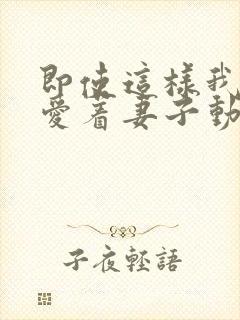 即使這樣我
愛着妻子動
子夜輕語